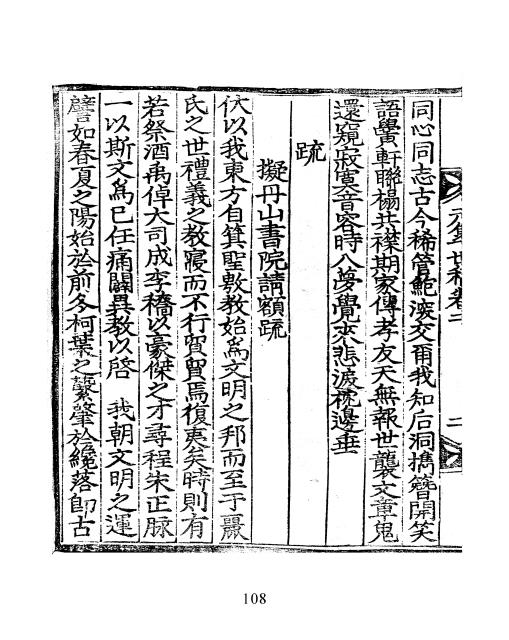 同心同志古今稀管鮑深交爾我知后洞携簪開笑
語黌軒聯榻共襟期家傳孝友天無報世襲文章鬼
還窺寂寞音容時入夢覺來悲淚枕邊垂
疏
擬丹山書院請額疏
伏以我東方自箕聖敷教始爲文明之邦而至于羅
氏之世禮義之教寢而不行貿貿焉復夷矣時則有
若祭酒禹倬大司成李穡以豪傑之才尋程朱正脉
一以斯文爲己任痛闢異教以啓 我朝文明之運
譬如春夏之陽始於前冬柯葉之蘩肇於纔落即古
世稿卷二
二
108